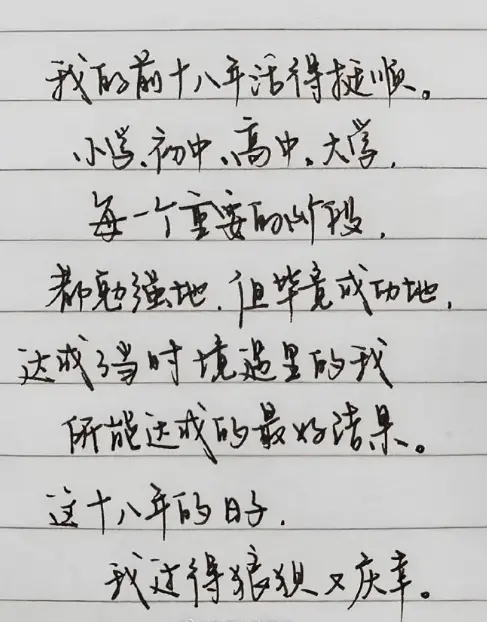 我的前十八年活得挺顺。
小学、初中、高中、大学，
每一个重要的阶段，
都勉强地，但毕竟成功地，
达成了当时境遇里的我
所能达成的最好结果。
这十八年的日子，
我过得狼狈又庆幸。